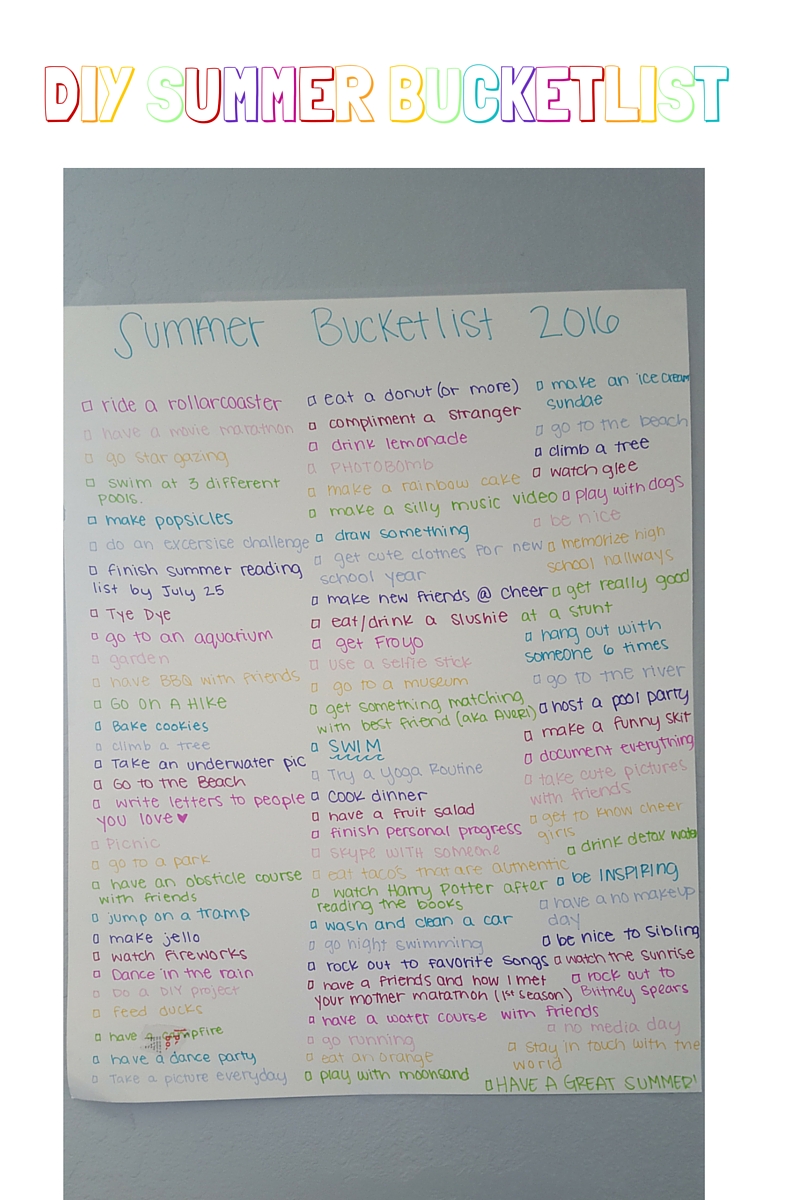 DIY SUMMER BUCKETLIST
Summer Bucketlist 2016
ride a rollarcoaster
have a movie marathon
go star gazing
swim at 3 different
pools.
make popsicles
do an excersise challenge
finish summer reading
list by July 25
Tye Dye
go to an aquarium
garden
have BBQ with friends
Go on A Hike
Bake cookies
climb a tree
Take an underwater pic
Go to the Beach
write letters to people
you love ♥
Picnic
go to a park
have an obsticle course
with friends
jump on a tramp
make jello
watch fireworks
Dance in the rain
Do a DIY project
feed ducks
have a campfire
have a dance party
Take a picture everyday
eat a donut (or more)
compliment a stranger
drink lemonade
PHOTOBOMB
make a rainbow cake
make a silly music video
draw something
get cute clothes for new
school year
make new friends @ cheer
eat/drink a slushie
get Froyo
use a selfie stick
go to a museum
get something matching
with best friend (aka Averi)
SWIM
Try a yoga Routine
cook dinner
have a fruit salad
finish personal progress
skype with someone
eat tacos that are authentic
watch Harry Potter after
reading the books
wash and clean a car
go night swimming
rock out to favorite songs
have a friends and how I met
your mother matathon (1st season)
have a water course with friends
go running
eat an orange
play with moonsand
make an ice cream
sundae
go to the beach
climb a tree
watch glee
play with dogs
be nice
memorize high
school hallways
get really good
at a stunt
hang out with
someone 6 times
go to the river
host a pool party
make a funny skit
document everything
take cute pictures
with friends
get to know cheer
girls
drink detox water
be INSPIRING
have a no makeup
day
be nice to sibling
watch the sunrise
rock out to
Britney spears
no media day
stay in touch with the
world
HAVE A GREAT SUMMER!